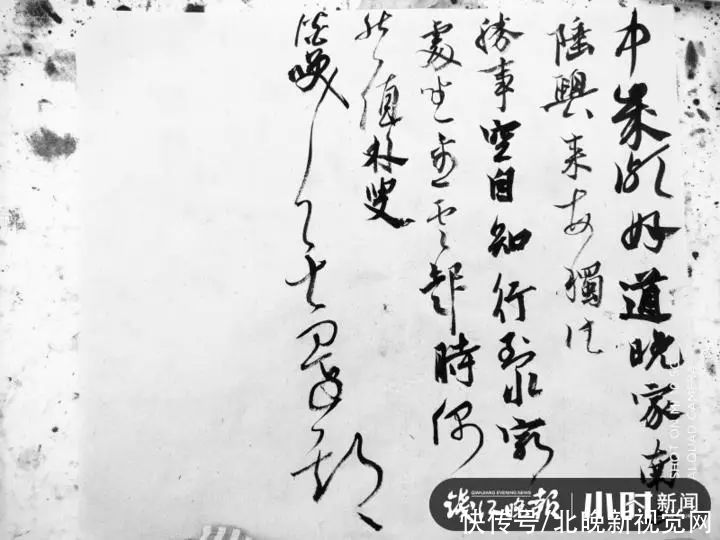 中歲頗好道晚家南
陲興来每獨往
勝事空自知行到水窮
處坐看雲起時偶
然值林叟
談笑
SHOT ON
AI QUAD CAMERA
QIANJIANG EVENING NEWS
钱江晚报 小时新闻
快传号/北晚新视觉网